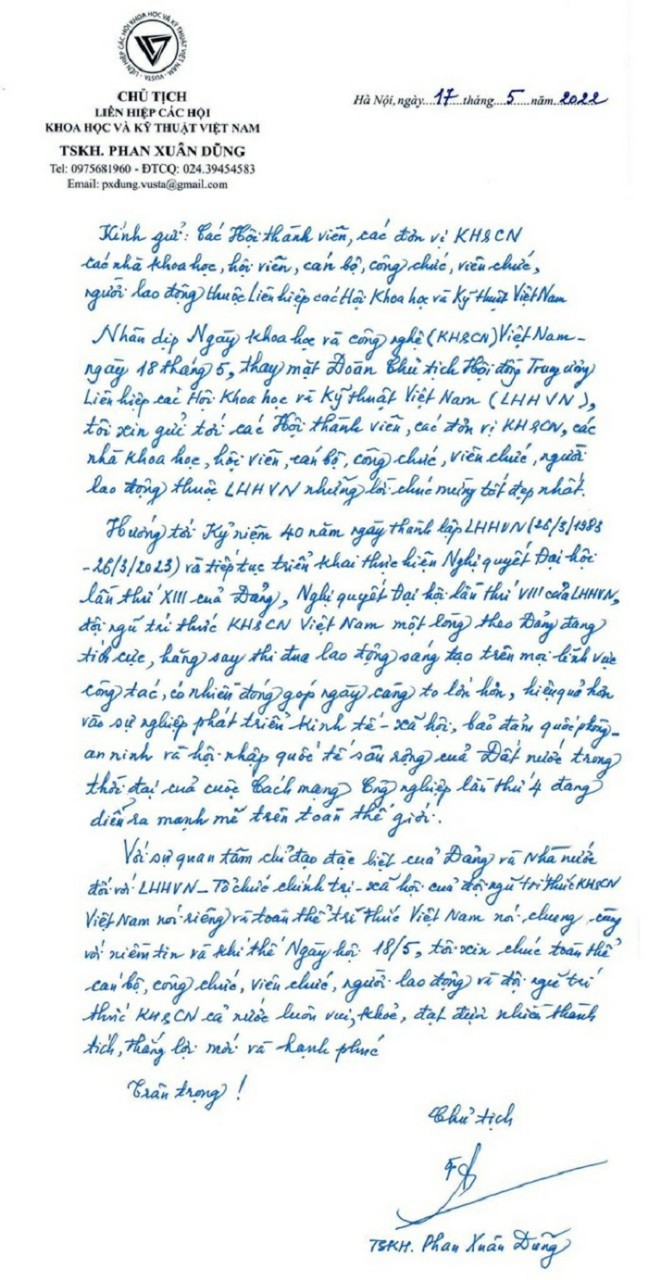 LIÊN HIỆP CÁC HỘI KHOA HỌC VÀ KỸ THUẬT VIỆT NAM
VUSTA
CHỦ TỊCH
LIÊN HIỆP CÁC HỘI
KHOA HỌC VÀ KỸ THUẬT VIỆT NAM
TSKH. PHAN XUÂN DŨNG
Tel: 0975681960 - ĐTCQ: 024.39454583
Email: pxdung.vusta@gmail.com
Hà Nội, ngày...17...tháng...5...năm...2022
Kính gửi: Các Hội thành viên, các đơn vị KH&CN
các nhà khoa học, hội viên, cán bộ, công chức, viên chức,
người lao động thuộc Liên hiệp các Hội Khoa học và Kỹ thuật Việt Nam
Nhân dịp Ngày khoa học và công nghệ (KH&CN) Việt Nam -
ngày 18 tháng 5, thay mặt Đoàn Chủ tịch Hội đồng Trung ương
Liên hiệp các Hội Khoa học và Kỹ thuật Việt Nam (LHHVN),
tôi xin gửi tới các Hội thành viên, các đơn vị KH&CN, các
nhà khoa học, hội viên, cán bộ, công chức, viên chức, người
lao động thuộc LHHVN những lời chúc mừng tốt đẹp nhất.
Hướng tới Kỷ niệm 40 năm ngày thành lập LHHVN (26/3/1983
-26/3/2023) và tiếp tục triển khai thực hiện Nghị quyết Đại hội
lần thứ XIII của Đảng, Nghị quyết Đại hội lần thứ VIII của LHHVN,
đội ngũ trí thức KH&CN Việt Nam một lòng theo Đảng đang
tích cực, hăng say thi đua lao động sáng tạo trên mọi lĩnh vực
công tác, có nhiều đóng góp ngày càng to lớn hơn, hiệu quả hơn
vào sự nghiệp phát triển kinh tế - xã hội, bảo đảm quốc phòng -
an ninh và hội nhập quốc tế sâu rộng của Đất nước trong
thời đại của cuộc Cách mạng Công nghiệp lần thứ 4 đang
diễn ra mạnh mẽ trên toàn thế giới.
Với sự quan tâm chỉ đạo đặc biệt của Đảng và Nhà nước
đối với LHHVN - Tổ chức chính trị - xã hội của đội ngũ trí thức KH&CN
Việt Nam nói riêng và toàn thể trí thức Việt Nam nói chung, cùng
với niềm tin và khí thế Ngày hội 18/5, tôi xin chúc toàn thể
cán bộ, công chức, viên chức, người lao động và đội ngũ trí
thức KH&CN cả nước luôn vui, khoẻ, đạt được nhiều thành
tích, thắng lợi mới và hạnh phúc
Trân trọng!
Chủ tịch
TSKH. Phan Xuân Dũng